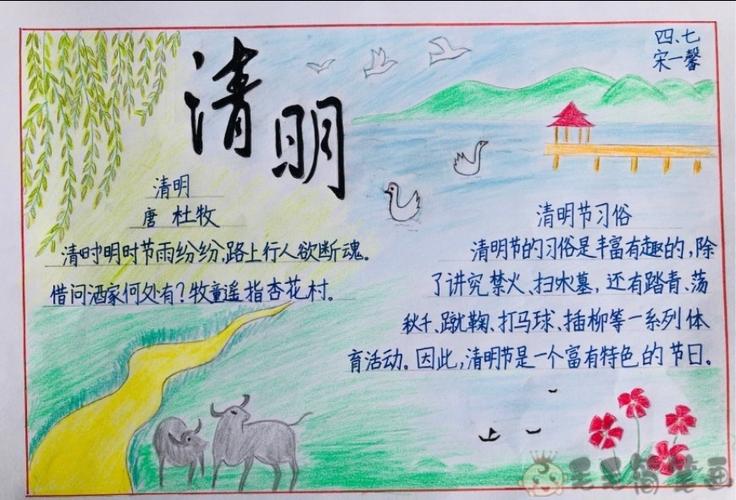 四、七
宋一馨
清明
清明
唐 杜牧
清时明时节雨纷纷，路上行人欲断魂。
借问酒家何处有？牧童遥指杏花村。
清明节习俗
清明节的习俗是丰富有趣的，除
了讲究禁火、扫水墓，还有踏青、荡
秋千、蹴鞠、打马球、插柳等一系列体
育活动。因此，清明节是一个富有特色的节日。
毛毛简笔画